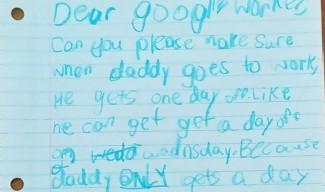 Dear google worker,
Can you please make sure
when daddy goes to work,
He gets one day off. Like
he can get get a day off
on wedd wednsday. BEcause
daddy ONLY gets a day